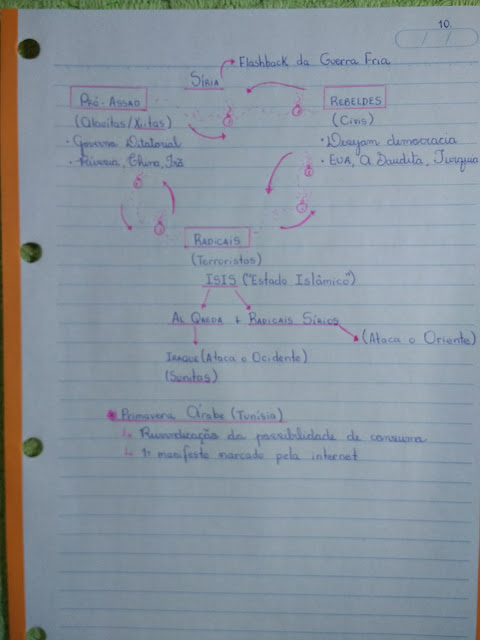 10.
/ /
Flashback da Guerra Fria
SÍRIA
PRÓ-ASSAD
REBELDES
(Alavitas/Xiitas)
(Civis)
• Governo Ditatorial
• Desejam democracia
• Rússia, China, Irã
• EUA, A Saudita, Turquia
RADICAIS
(Terroristas)
ISIS ("Estado Islâmico")
AL QAEDA + RADICAIS SÍRIOS
(Ataca o Oriente)
IRAQUE (Ataca o Ocidente)
(Sunitas)
Primavera Árabe (Tunísia)
↳ Reivindicação da possibilidade de consumo
↳ 1º manifesto marcado pela internet